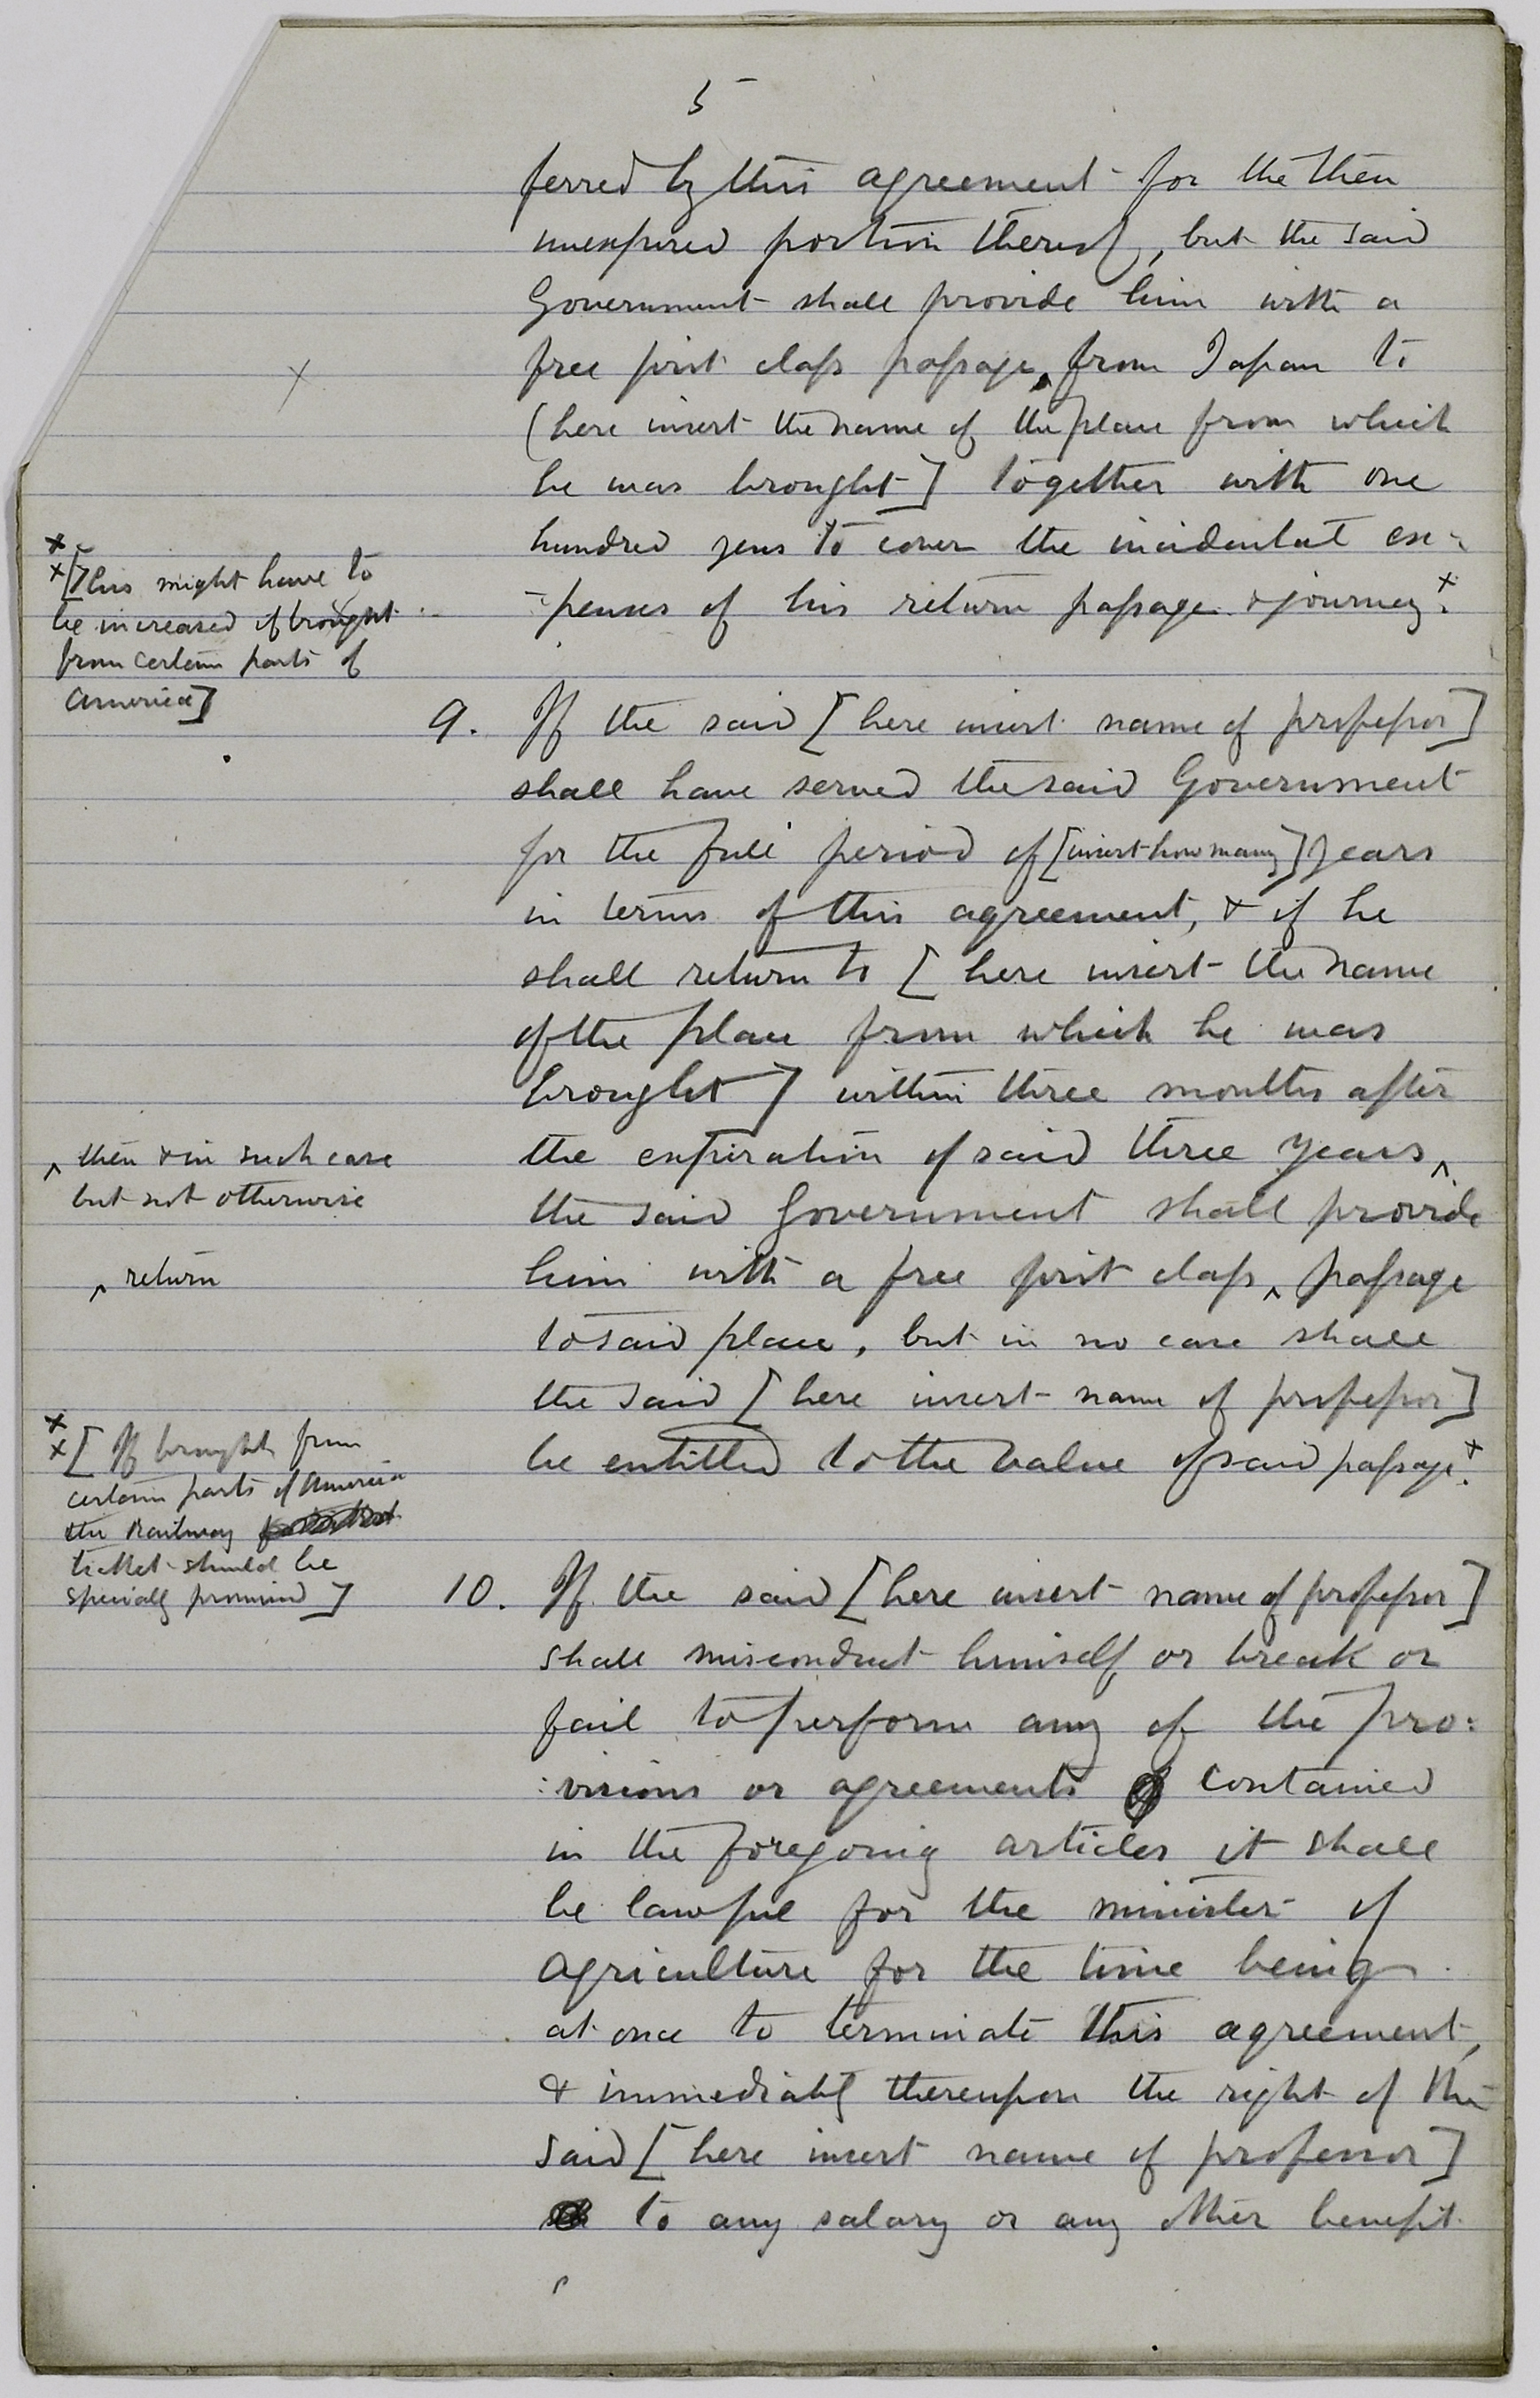 5
ferred by this agreement for the then
unexpired portion thereof, but the said
Government shall provide him with a
free first class passage from Japan to
(here insert the name of the place from which
he was brought] together with one
hundred yens to cover the incidental ex-
-penses of his return passage & journey x.
x
x [This might have to
be increased if brought
from certain parts of
America]
9. If the said [here insert name of professor]
shall have served the said Government
for the full period of [insert how many] years
in terms of this agreement, & if he
shall return to [here insert the name
of the place from which he was
brought] within three months after
the expiration of said three years ‸
‸ then & in such case
but not otherwise
the said Government shall provide
him with a free first class ‸ passage
‸ return
to said place, but in no case shall
the said [here insert name of professor]
be entitled to the value of said passage x.
x
x [If brought from
certain parts of America
the Railway
ticket should be
specially promised]
10. If the said [here insert name of professor]
shall misconduct himself or break or
fail to perform any of the pro:
:visions or agreements contained
in the foregoing articles it shall
be lawful for the minister of
agriculture for the time being
at once to terminate this agreement,
& immediately thereupon the right of the
said [here insert name of professor]
to any salary or any other benefit